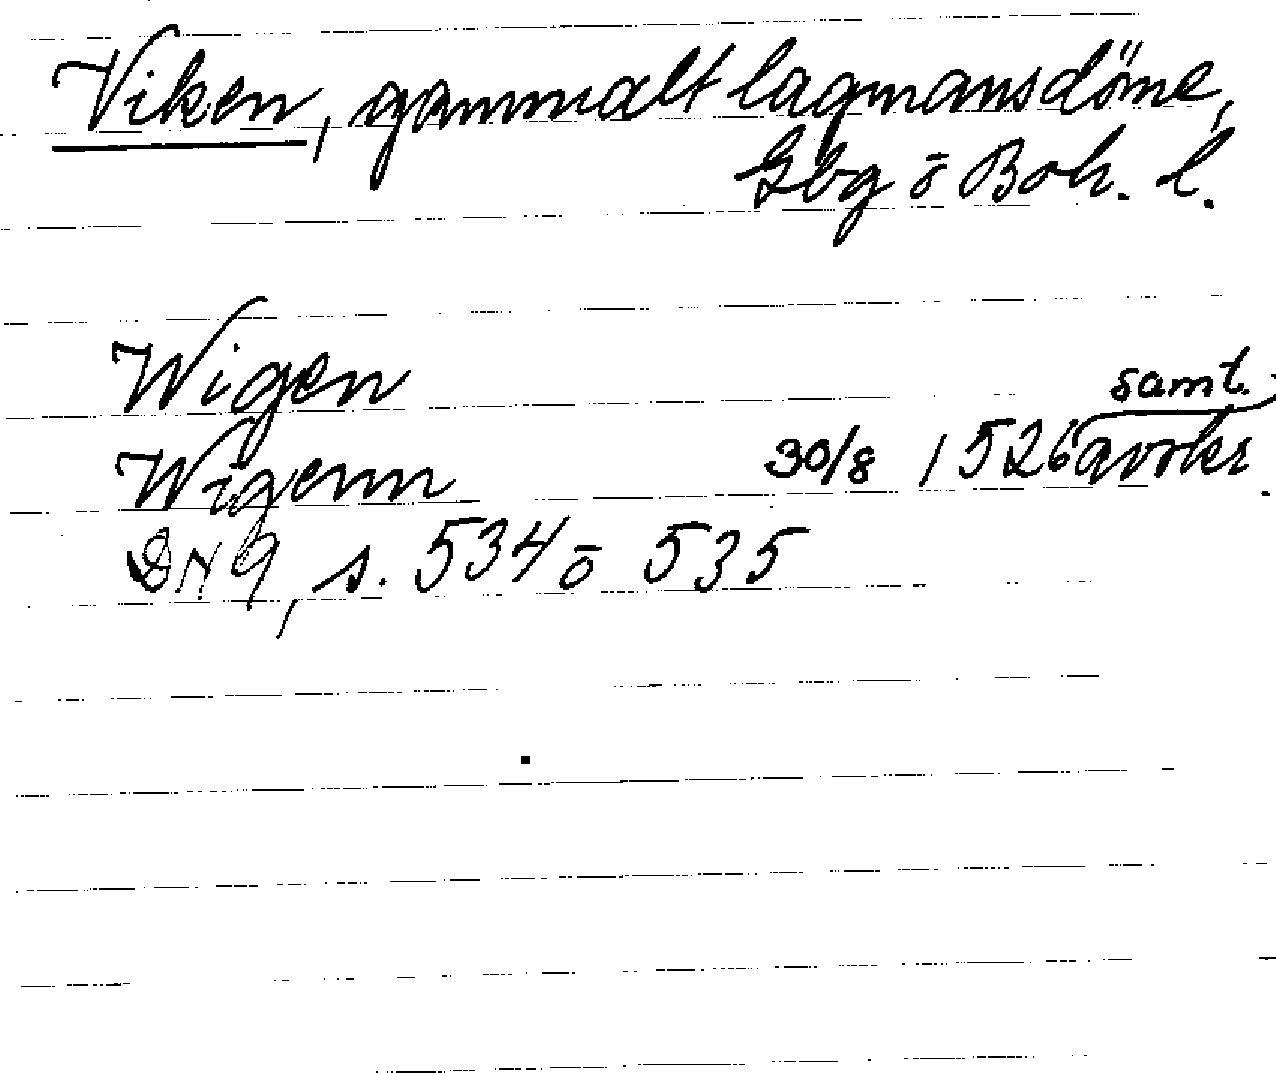 Viken, gammalt lagmansdöme,
Gbg ō Boh. l.
Wigen
Wigenn 30/8 1526 samt. avskr.
DN 9, s. 534 ō 535